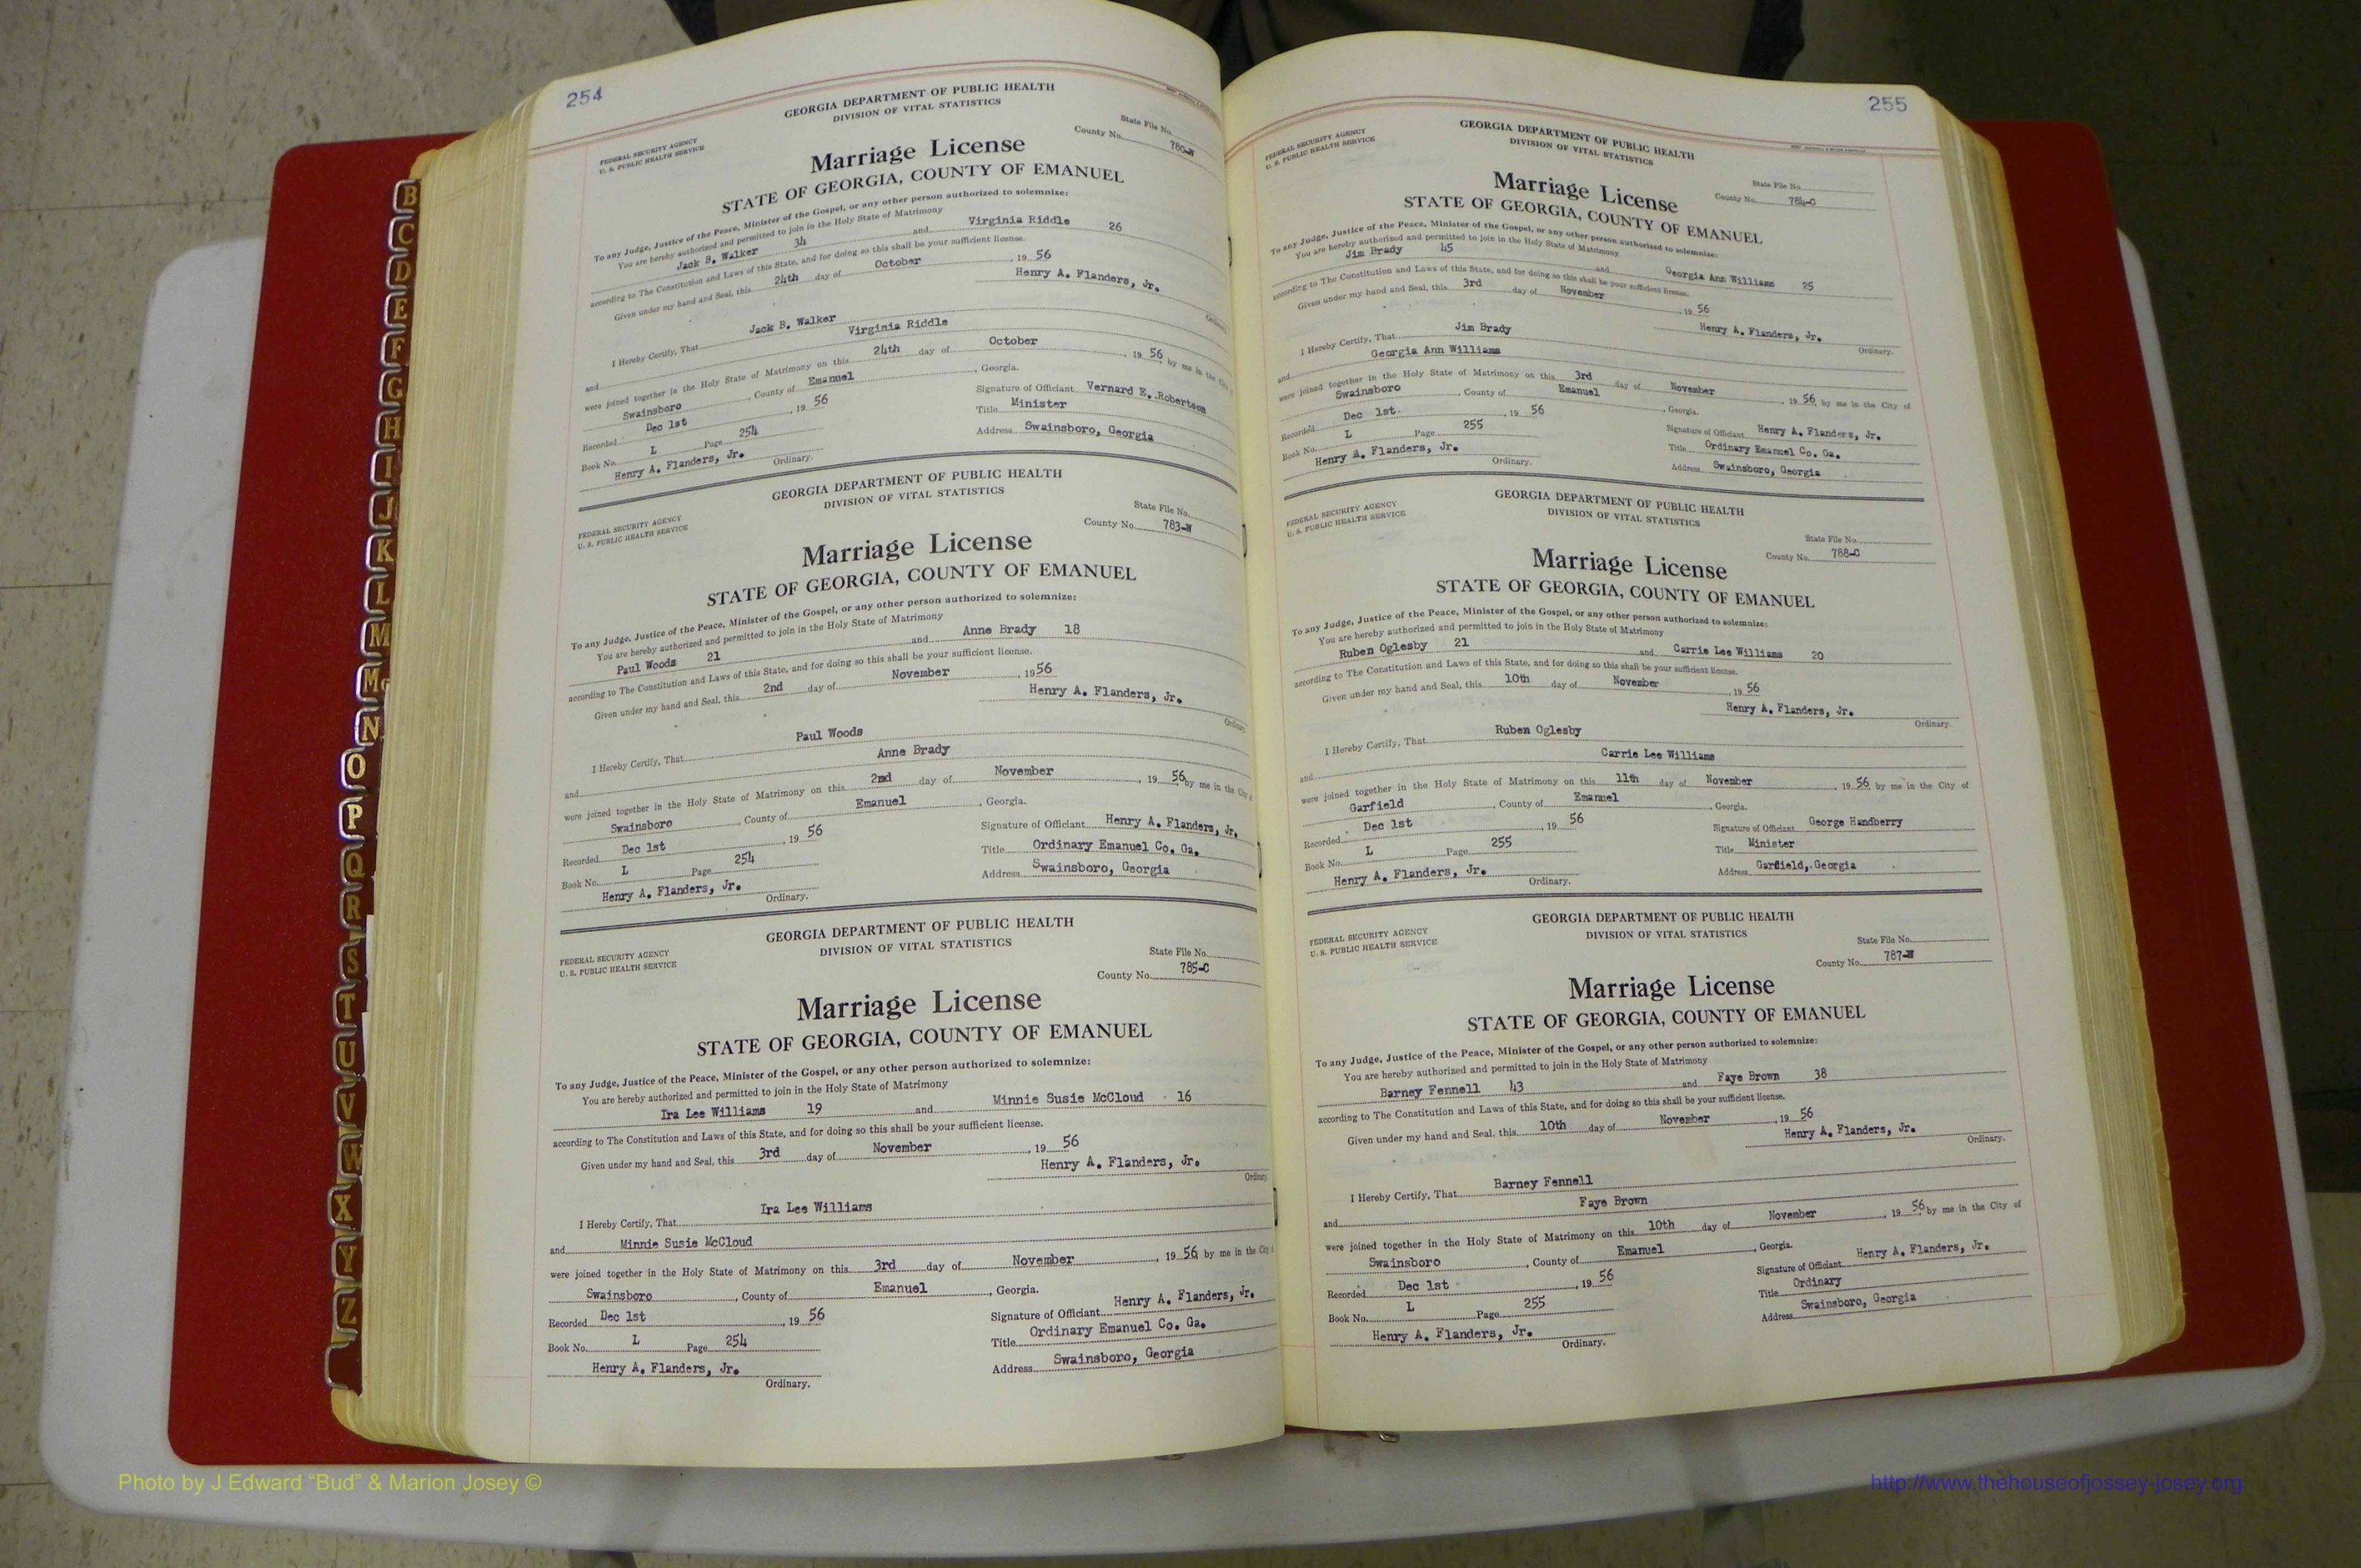 254
GEORGIA DEPARTMENT OF PUBLIC HEALTH
DIVISION OF VITAL STATISTICS
FEDERAL SECURITY AGENCY
U. S. PUBLIC HEALTH SERVICE
State File No.
County No. 780-W
Marriage License
STATE OF GEORGIA, COUNTY OF EMANUEL
To any Judge, Justice of the Peace, Minister of the Gospel, or any other person authorized to solemnize:
You are hereby authorized and permitted to join in the Holy State of Matrimony
Jack B. Walker 34 and Virginia Riddle 26
according to The Constitution and Laws of this State, and for doing so this shall be your sufficient license.
Given under my hand and Seal, this 24th day of October, 19 56
Henry A. Flanders, Jr.
Ordinary
I Hereby Certify, That Jack B. Walker
and Virginia Riddle
were joined together in the Holy State of Matrimony on this 24th day of October, 19 56 by me in the City
Swainsboro, County of Emanuel, Georgia.
Recorded Dec 1st, 19 56
Signature of Officiant Vernard E. Robertson
Book No. L Page 254
Title Minister
Henry A. Flanders, Jr. Ordinary.
Address Swainsboro, Georgia
GEORGIA DEPARTMENT OF PUBLIC HEALTH
DIVISION OF VITAL STATISTICS
FEDERAL SECURITY AGENCY
U. S. PUBLIC HEALTH SERVICE
State File No.
County No. 783-W
Marriage License
STATE OF GEORGIA, COUNTY OF EMANUEL
To any Judge, Justice of the Peace, Minister of the Gospel, or any other person authorized to solemnize:
You are hereby authorized and permitted to join in the Holy State of Matrimony
Paul Woods 21 and Anne Brady 18
according to The Constitution and Laws of this State, and for doing so this shall be your sufficient license.
Given under my hand and Seal, this 2nd day of November, 19 56
Henry A. Flanders, Jr.
Ordinary
I Hereby Certify, That Paul Woods
and Anne Brady
were joined together in the Holy State of Matrimony on this 2nd day of November, 19 56 by me in the City
Swainsboro, County of Emanuel, Georgia.
Recorded Dec 1st, 19 56
Signature of Officiant Henry A. Flanders, Jr.
Book No. L Page 254
Title Ordinary Emanuel Co. Ga.
Henry A. Flanders, Jr. Ordinary.
Address Swainsboro, Georgia
GEORGIA DEPARTMENT OF PUBLIC HEALTH
DIVISION OF VITAL STATISTICS
FEDERAL SECURITY AGENCY
U. S. PUBLIC HEALTH SERVICE
State File No.
County No. 785-C
Marriage License
STATE OF GEORGIA, COUNTY OF EMANUEL
To any Judge, Justice of the Peace, Minister of the Gospel, or any other person authorized to solemnize:
You are hereby authorized and permitted to join in the Holy State of Matrimony
Ira Lee Williams 19 and Minnie Susie McCloud 16
according to The Constitution and Laws of this State, and for doing so this shall be your sufficient license.
Given under my hand and Seal, this 3rd day of November, 19 56
Henry A. Flanders, Jr.
Ordinary
I Hereby Certify, That Ira Lee Williams
and Minnie Susie McCloud
were joined together in the Holy State of Matrimony on this 3rd day of November, 19 56 by me in the City
Swainsboro, County of Emanuel, Georgia.
Recorded Dec 1st, 19 56
Signature of Officiant Henry A. Flanders, Jr.
Book No. L Page 254
Title Ordinary Emanuel Co. Ga.
Henry A. Flanders, Jr.
Address Swainsboro, Georgia
Ordinary.
255
GEORGIA DEPARTMENT OF PUBLIC HEALTH
DIVISION OF VITAL STATISTICS
FEDERAL SECURITY AGENCY
U. S. PUBLIC HEALTH SERVICE
State File No.
County No. 784-C
Marriage License
STATE OF GEORGIA, COUNTY OF EMANUEL
To any Judge, Justice of the Peace, Minister of the Gospel, or any other person authorized to solemnize:
You are hereby authorized and permitted to join in the Holy State of Matrimony
Jim Brady 45 and Georgia Ann Williams 25
according to The Constitution and Laws of this State, and for doing so this shall be your sufficient license.
Given under my hand and Seal, this 3rd day of November, 19 56
Henry A. Flanders, Jr.
Ordinary.
I Hereby Certify, That Jim Brady
and Georgia Ann Williams
were joined together in the Holy State of Matrimony on this 3rd day of November, 19 56 by me in the City of
Swainsboro, County of Emanuel, Georgia.
Recorded Dec 1st, 19 56
Signature of Officiant Henry A. Flanders, Jr.
Book No. L Page 255
Title Ordinary Emanuel Co. Ga.
Henry A. Flanders, Jr. Ordinary.
Address Swainsboro, Georgia
GEORGIA DEPARTMENT OF PUBLIC HEALTH
DIVISION OF VITAL STATISTICS
FEDERAL SECURITY AGENCY
U. S. PUBLIC HEALTH SERVICE
State File No.
County No. 788-C
Marriage License
STATE OF GEORGIA, COUNTY OF EMANUEL
To any Judge, Justice of the Peace, Minister of the Gospel, or any other person authorized to solemnize:
You are hereby authorized and permitted to join in the Holy State of Matrimony
Ruben Oglesby 21 and Carrie Lee Williams 20
according to The Constitution and Laws of this State, and for doing so this shall be your sufficient license.
Given under my hand and Seal, this 10th day of November, 19 56
Henry A. Flanders, Jr.
Ordinary.
I Hereby Certify, That Ruben Oglesby
and Carrie Lee Williams
were joined together in the Holy State of Matrimony on this 11th day of November, 19 56 by me in the City of
Garfield, County of Emanuel, Georgia.
Recorded Dec 1st, 19 56
Signature of Officiant George Handberry
Book No. L Page 255
Title Minister
Henry A. Flanders, Jr. Ordinary.
Address Garfield, Georgia
GEORGIA DEPARTMENT OF PUBLIC HEALTH
DIVISION OF VITAL STATISTICS
FEDERAL SECURITY AGENCY
U. S. PUBLIC HEALTH SERVICE
State File No.
County No. 787-W
Marriage License
STATE OF GEORGIA, COUNTY OF EMANUEL
To any Judge, Justice of the Peace, Minister of the Gospel, or any other person authorized to solemnize:
You are hereby authorized and permitted to join in the Holy State of Matrimony
Barney Fennell 43 and Faye Brown 38
according to The Constitution and Laws of this State, and for doing so this shall be your sufficient license.
Given under my hand and Seal, this 10th day of November, 19 56
Henry A. Flanders, Jr.
Ordinary.
I Hereby Certify, That Barney Fennell
and Faye Brown
were joined together in the Holy State of Matrimony on this 10th day of November, 19 56 by me in the City of
Swainsboro, County of Emanuel, Georgia.
Recorded Dec 1st, 19 56
Signature of Officiant Henry A. Flanders, Jr.
Book No. L Page 255
Title Ordinary
Henry A. Flanders, Jr.
Address Swainsboro, Georgia
Ordinary.
B
C
D
E
F
G
H
I
J
K
L
M
Mc
N
O
P
Q
R
S
T
U
V
W
X
Y
Z
Photo by J Edward “Bud” & Marion Josey ©
http://www.thehouseofjossey-josey.org